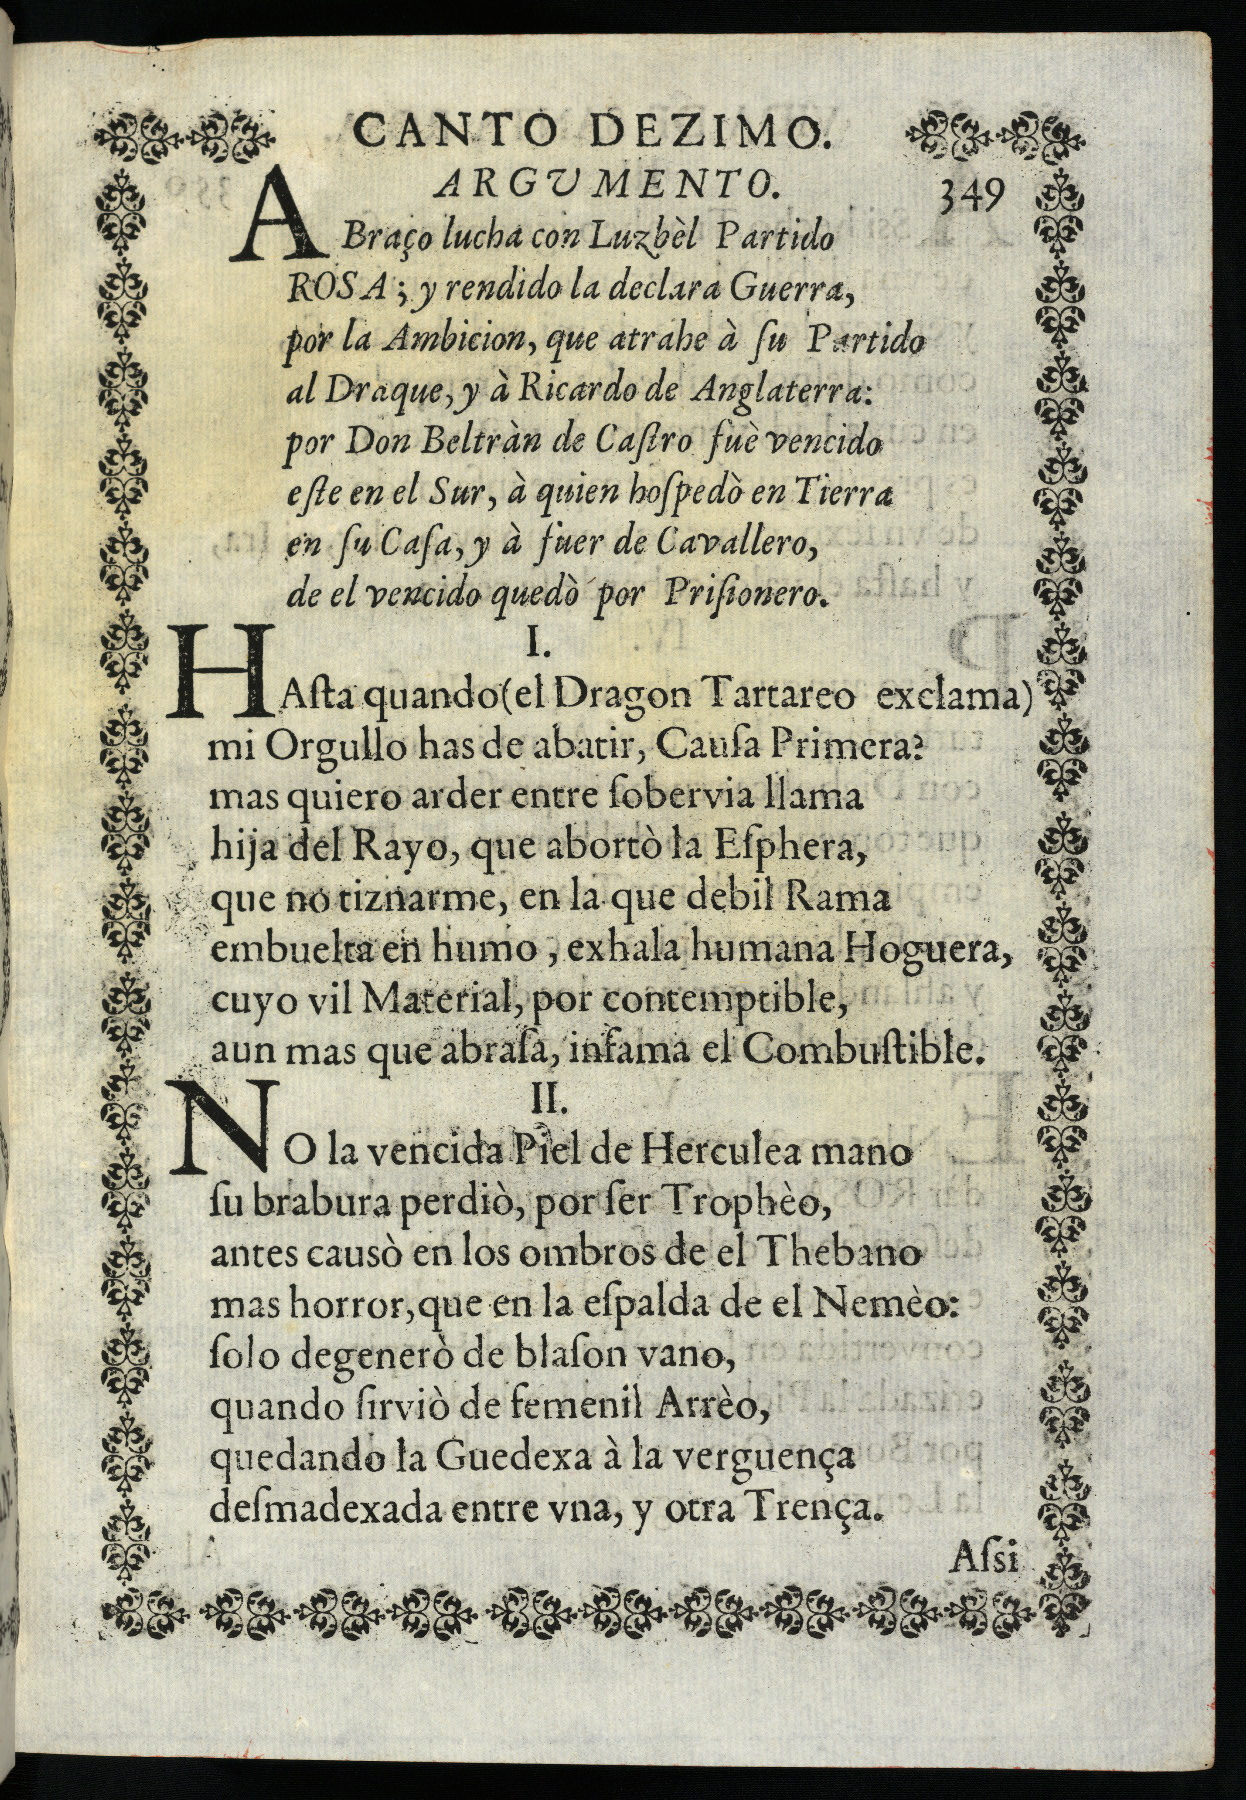 CANTO DEZIMO.
ARGVMENTO.
349
ABraço lucha con Luzbèl Partido
ROSA; y rendido la declara Guerra,
por la Ambicion, que atrahe à ſu Partido
al Draque, y à Ricardo de Anglaterra:
por Don Beltràn de Caſtro fuè vencido
eſte en el Sur, à quien hoſpedò en Tierra
en ſu Caſa, y à fuer de Cavallero,
de el vencido quedò por Priſionero.
I.
HAſta quando (el Dragon Tartareo exclama)
mi Orgullo has de abatir, Cauſa Primera?
mas quiero arder entre ſobervia llama
hija del Rayo, que abortò la Eſphera,
que no tiznarme, en la que debil Rama
embuelta en humo, exhala humana Hoguera,
cuyo vil Material, por contemptible,
aun mas que abraſa, infama el Combuſtible.
II.
NO la vencida Piel de Herculea mano
ſu brabura perdiò, por ſer Trophèo,
antes causò en los ombros de el Thebano
mas horror, que en la eſpalda de el Nemèo:
ſolo degenerò de blaſon vano,
quando ſirviò de femenil Arrèo,
quedando la Guedexa à la verguença
deſmadexada entre vna, y otra Trença.
Aſsi